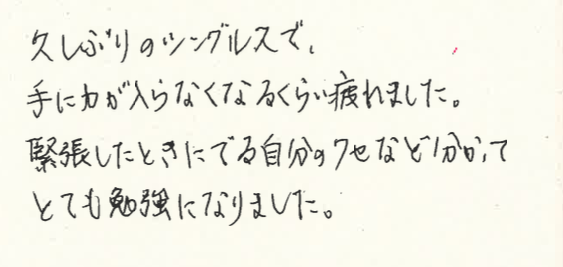 久しぶりのシングルスで、
手に力が入らなくなるくらい疲れました。
緊張したときにでる自分のクセなど分かって
とても勉強になりました。